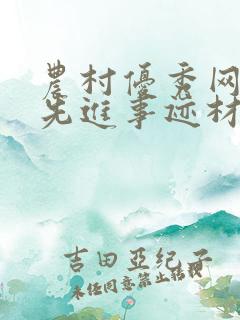 農村優秀网
先進事迹材
吉田亞紀子
未经同意禁止转载